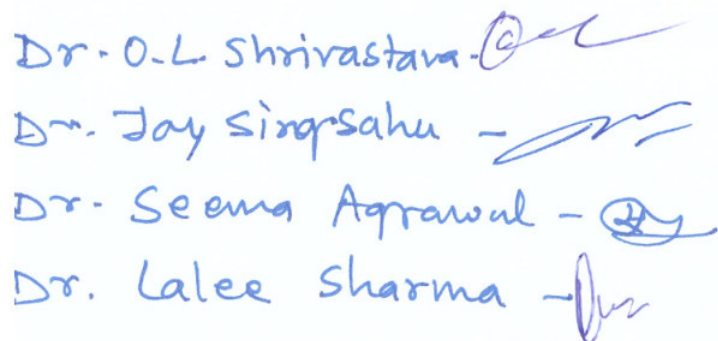 Dr. O.L. Shrivastava -
Dr. Jay Singsahu -
Dr. Seema Agrawal -
Dr. Lalee Sharma -